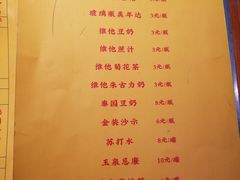 玻璃瓶美年达 3元/瓶
维他豆奶 3元/瓶
维他蔗汁 3元/瓶
维他菊花茶 3元/瓶
维他朱古力奶 3元/瓶
泰国豆奶 8元/瓶
金装沙示 6元/瓶
苏打水 8元/罐
玉泉忌廉 10元/罐